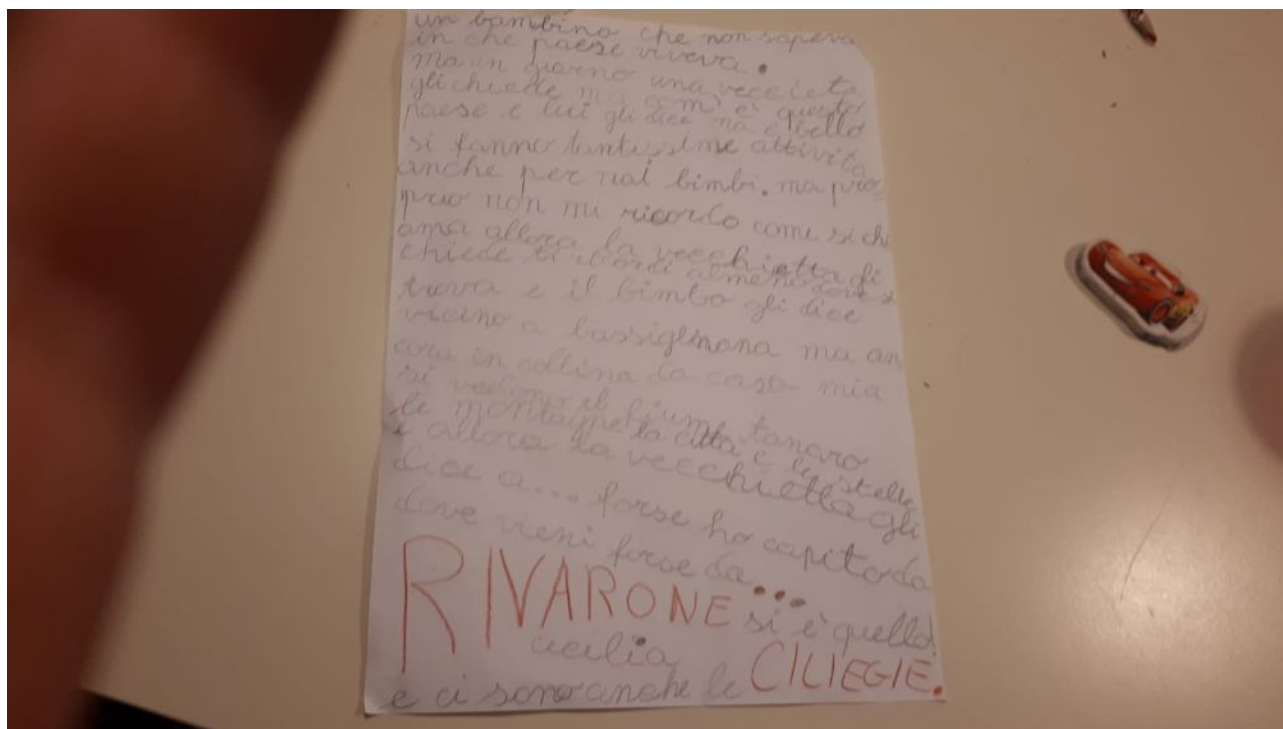 un bambino che non sapeva
in che paese viveva.
ma un giorno una veccieta
gli chiede ma com'è questo
paese e lui gli dice ma è bello
si fanno tantissime attivita
anche per noi bimbi. ma pro
prio non mi ricordo come si chi
ama allora la vecchietta gli
chiede ti ricordi almeno dove si
trova e il bimbo gli dice
vicino a bassiglinana ma an
cora in collina da casa mia
si vedono il fiume tanaro
le montagne la citta e le stelle
e allora la vecchietta gli
dice a... forse ho capito da
dove vieni forse da...
RIVARONE si è quello!
cecilia
e ci sono anche le CILIEGIE.